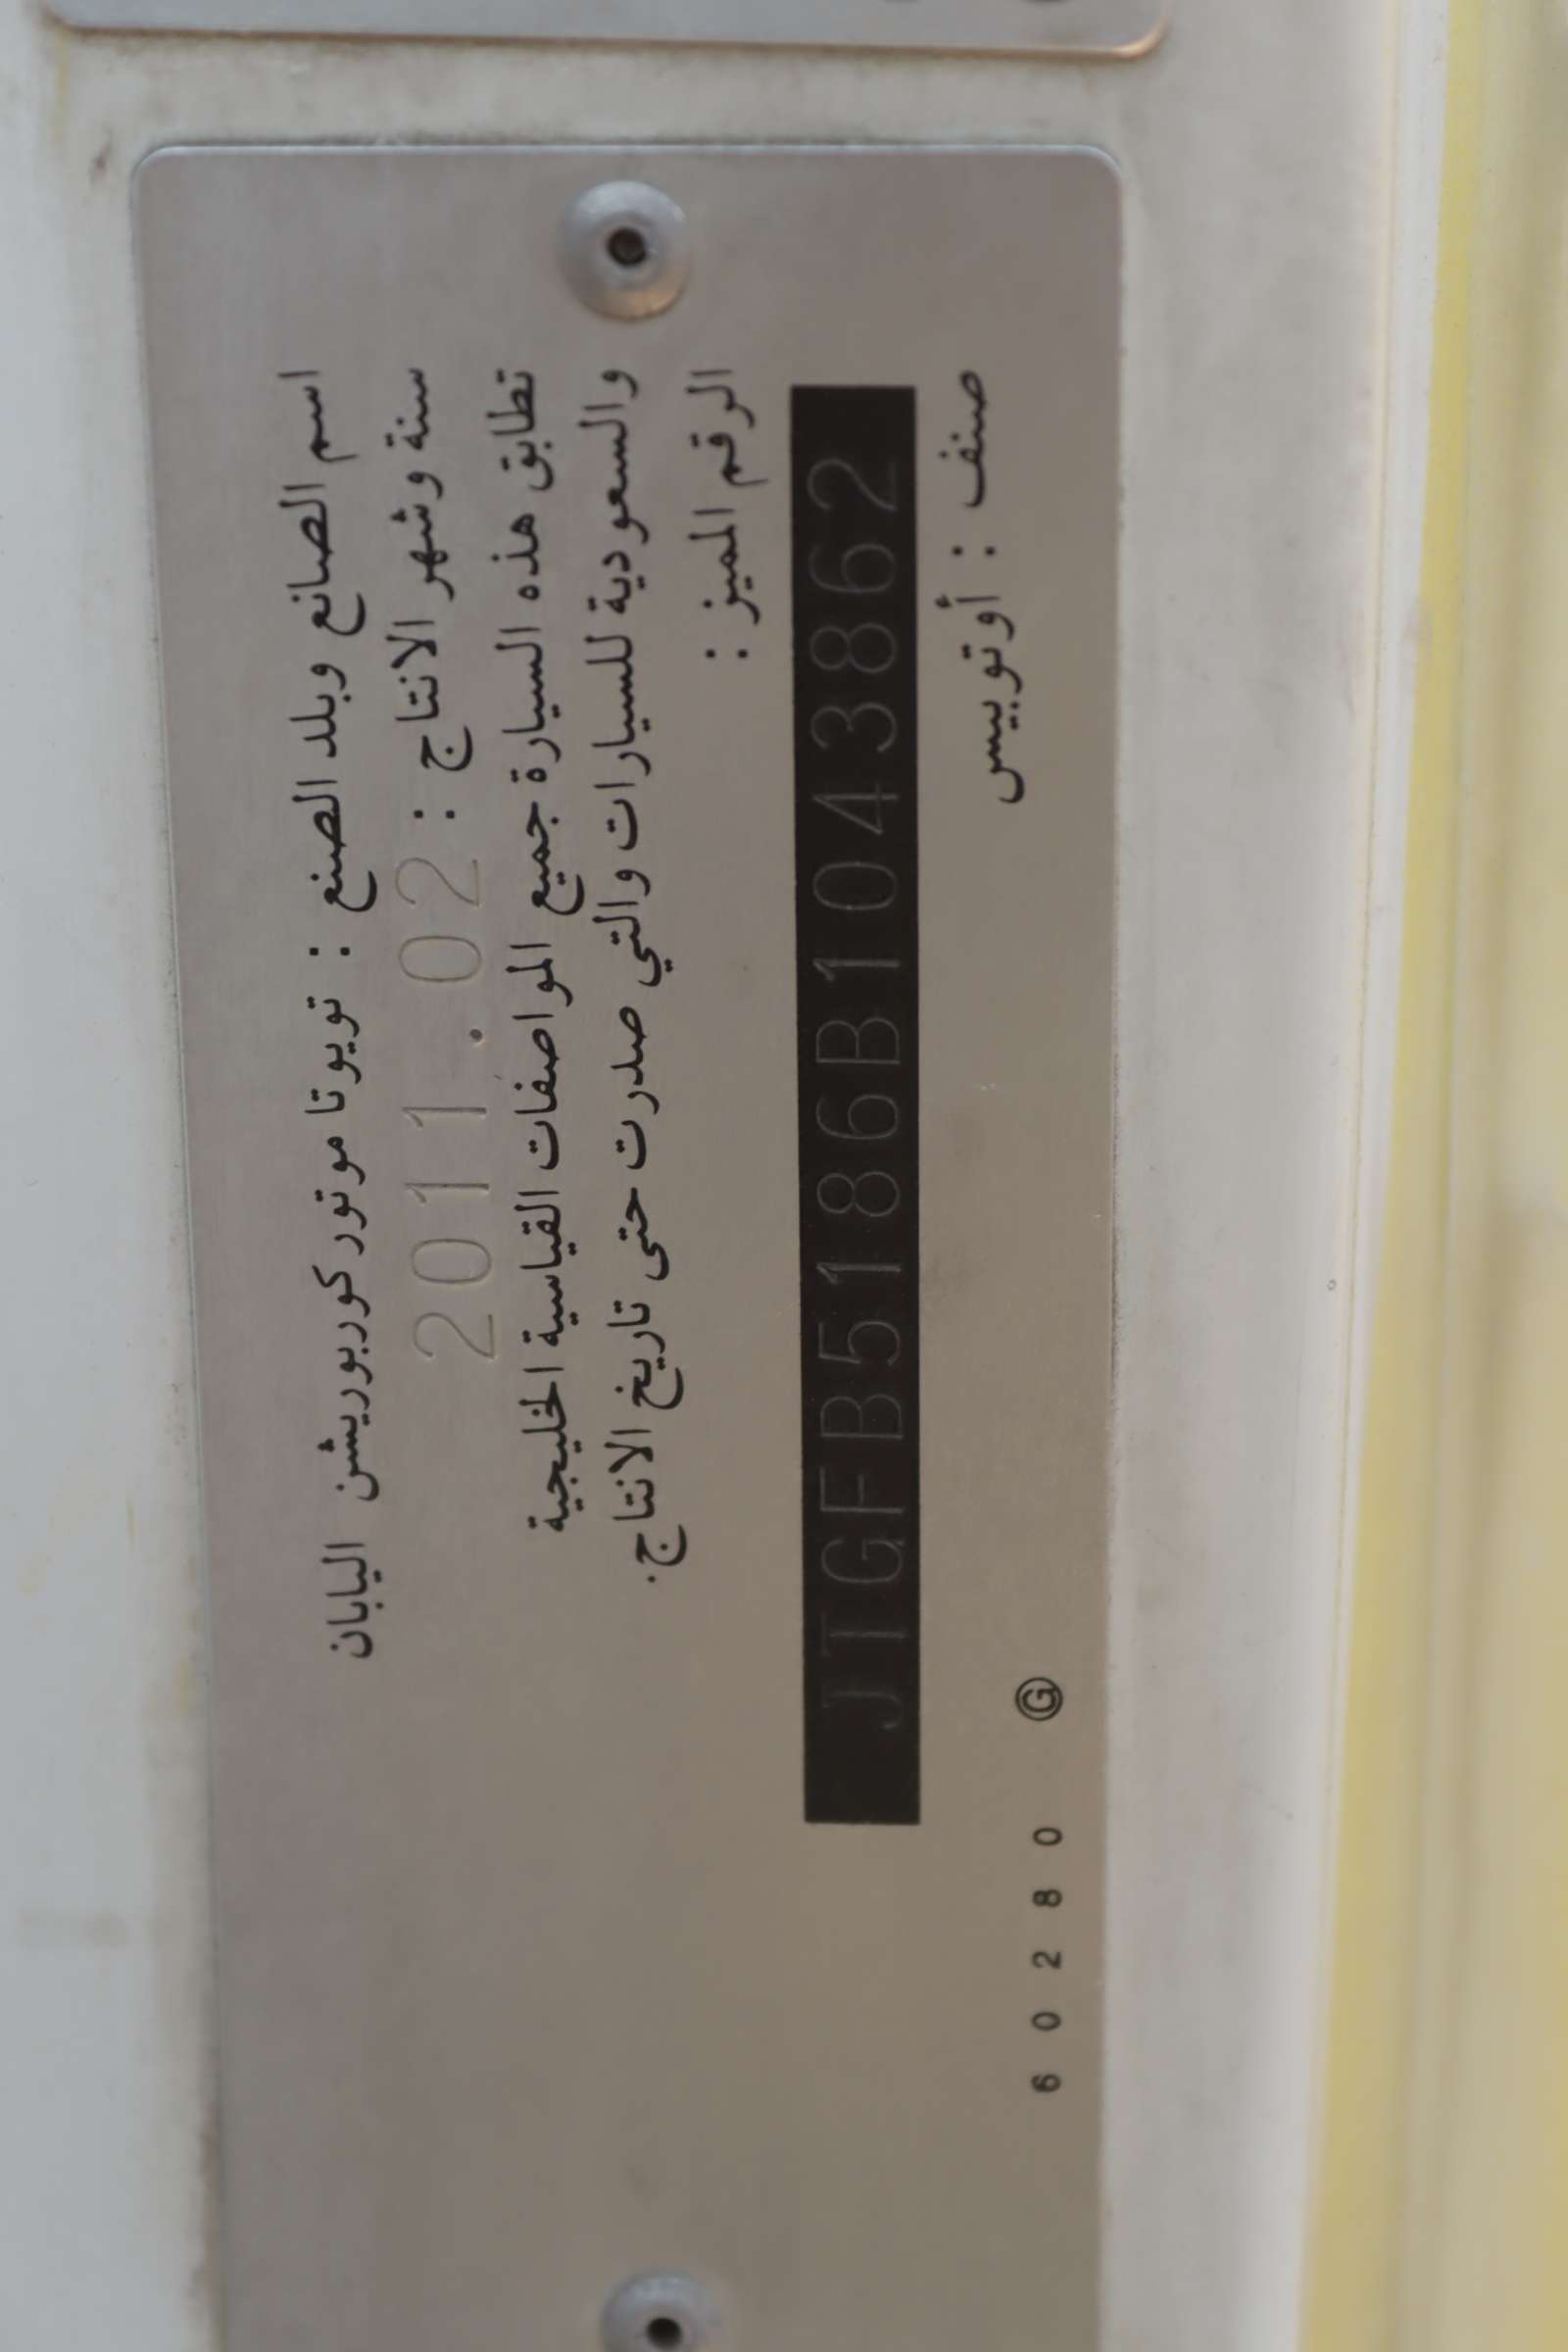 اسم الصانع وبلد الصنع : تويوتا موتور كوربوريشن اليابان
سنة وشهر الانتاج : 2011.02
تطابق هذه السيارة جميع المواصفات القياسية الخليجية
والسعودية للسيارات والتي صدرت حتى تاريخ الانتاج.
الرقم المميز :
JTGFB5186B1043862
صنف : أوتوبيس
60280 Ⓖ